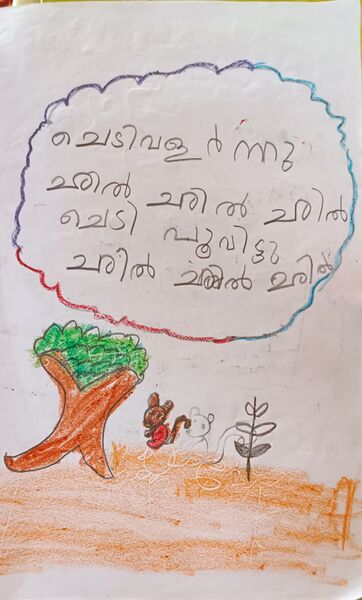 ചെടിവളർന്നു
ചരിൽ ചരിൽ ചരിൽ
ചെടി പൂവിട്ടു
ചരിൽ ചരിൽ ചരിൽ